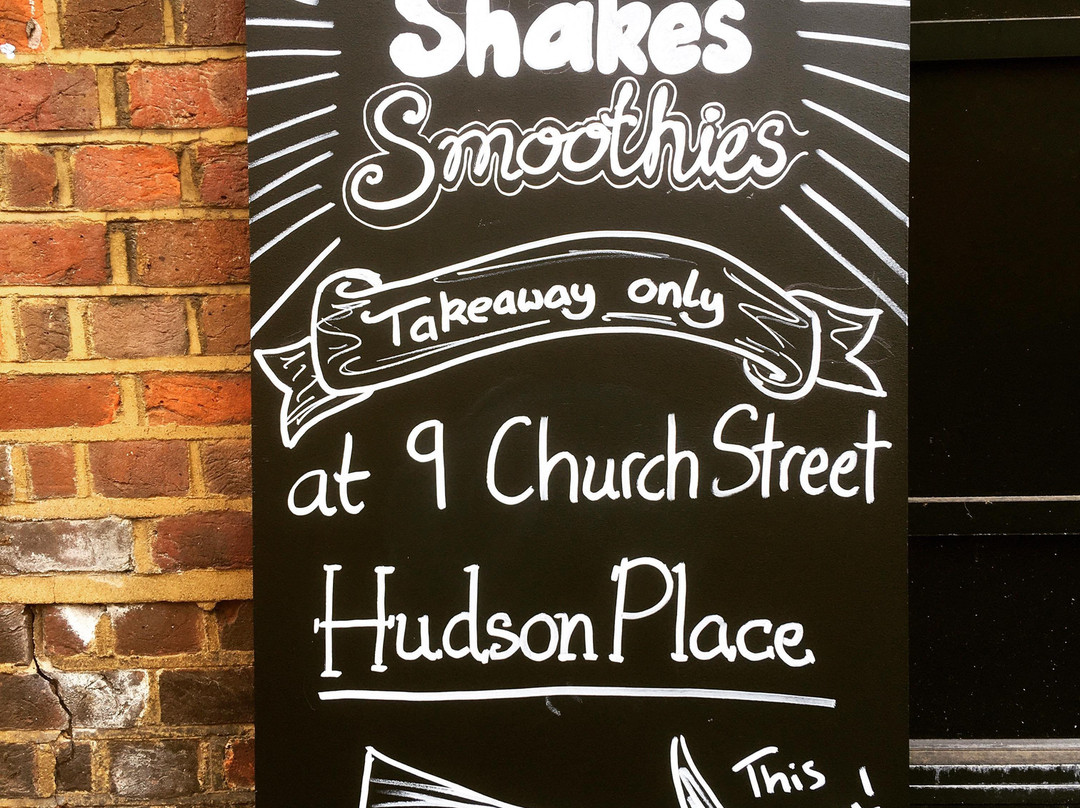 Shakes
Smoothies
Takeaway only
at 9 Church Street
Hudson Place
This